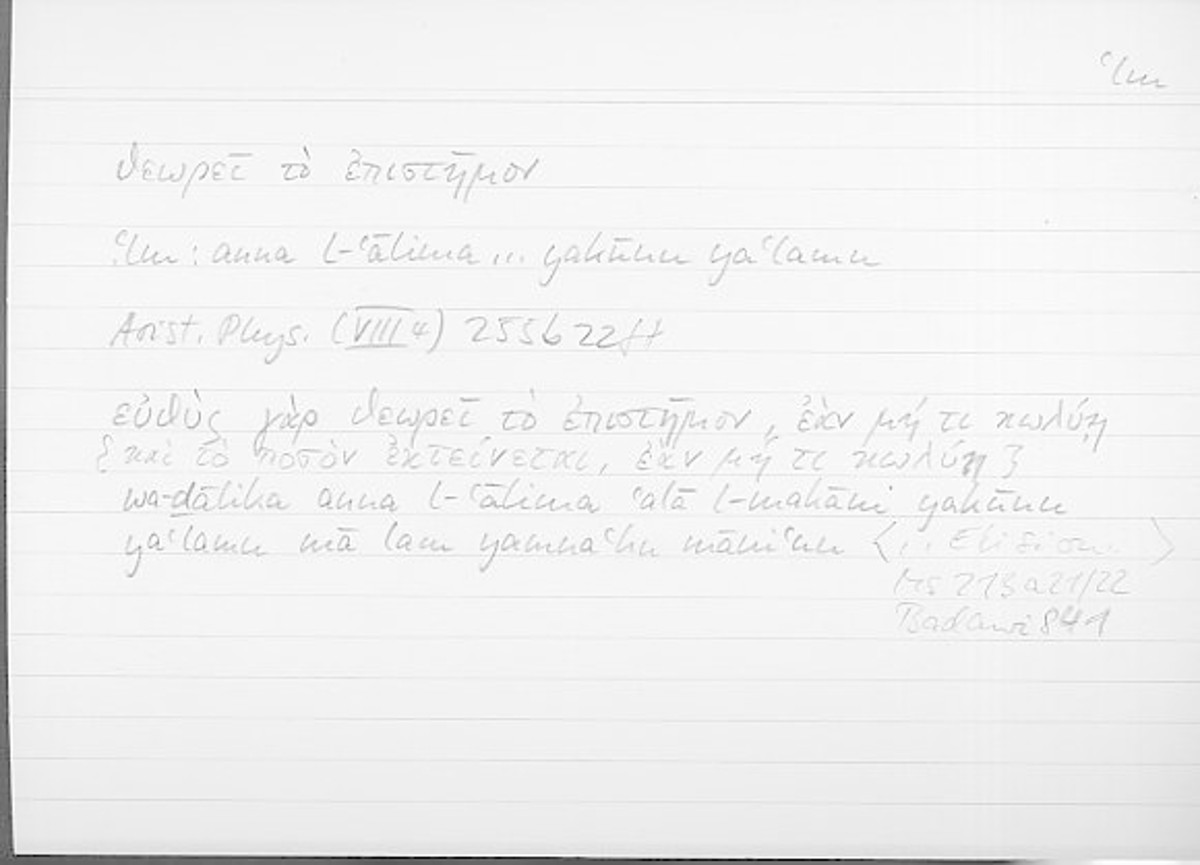 ʿlm
θεωρεῖ τὸ ἐπιστῆμον
ʿlm : anna l-ʿālima ... yakūnu yaʿlamu
Arist. Phys. (VIII 4) 255b22ff
εὐθὺς γὰρ θεωρεῖ τὸ ἐπιστῆμον, ἐὰν μή τι κωλύῃ
{καὶ τὸ ποσὸν ἐκτείνεται, ἐὰν μή τι κωλύῃ}
wa-ḏālika anna l-ʿālima ʿalā l-makāni yakūnu
yaʿlamu mā lam yamnaʿhu māniʿun <... Elision...>
Hs 213a21/22
Badawi 841